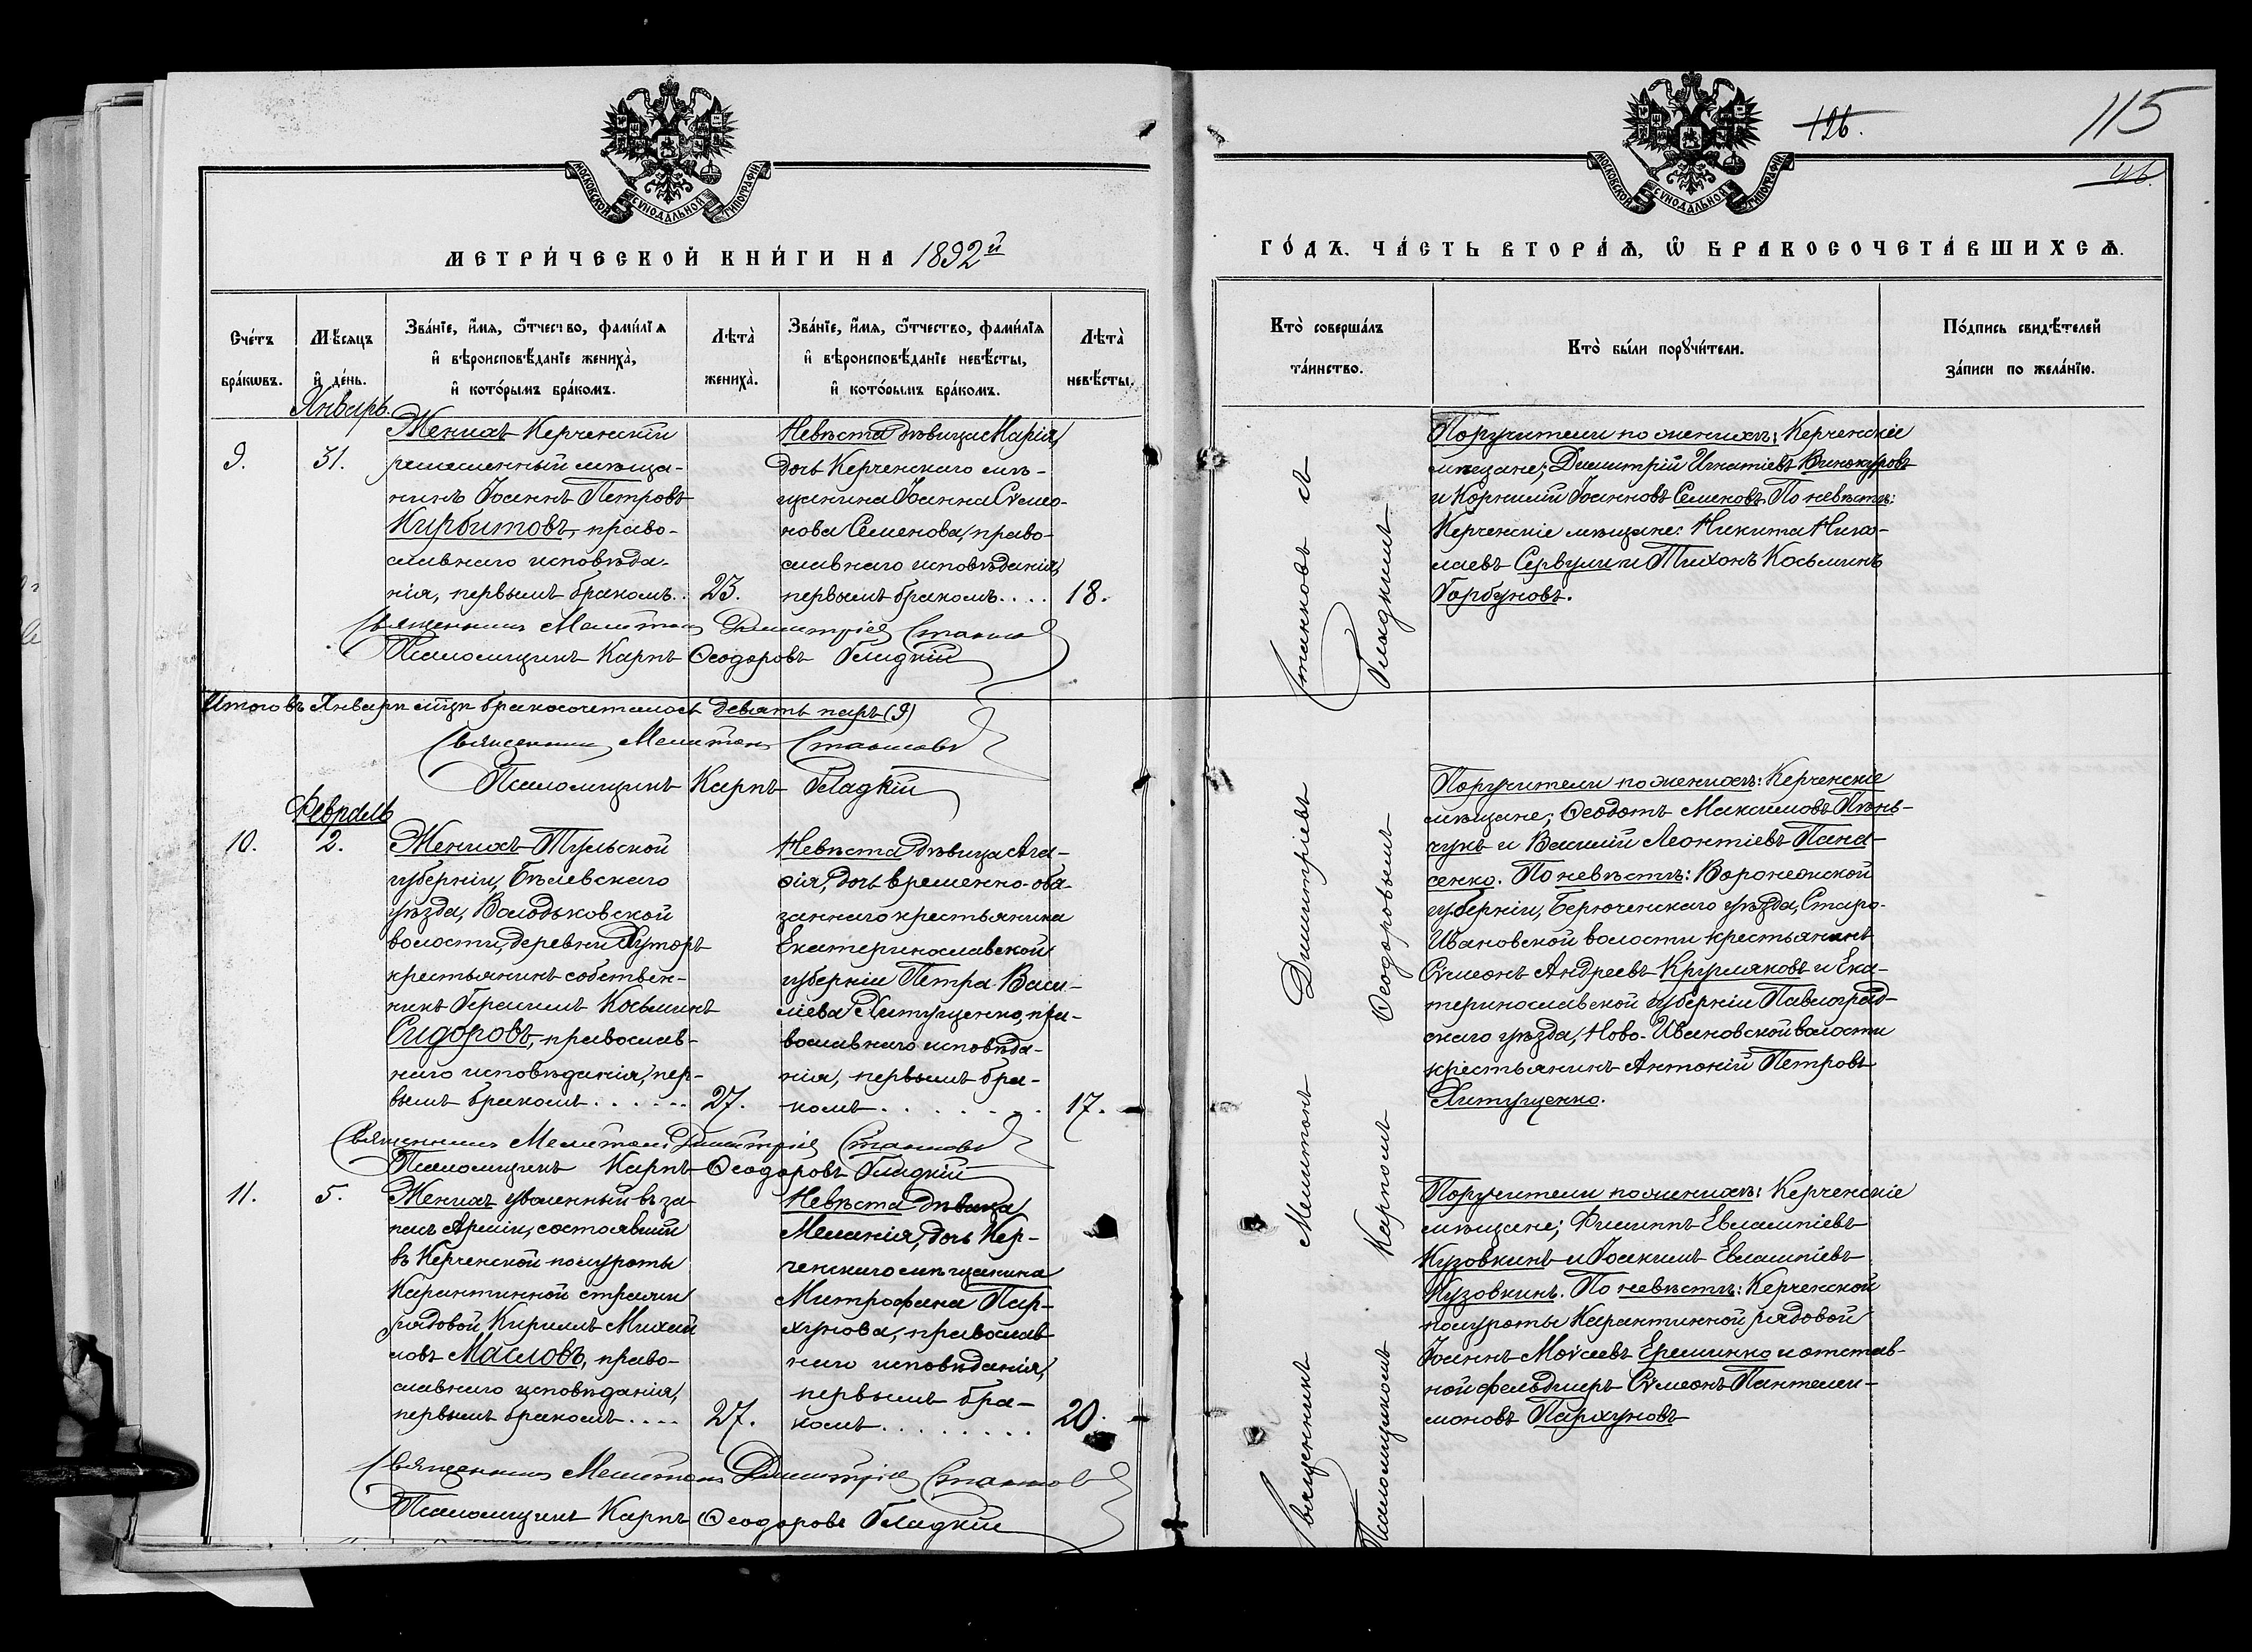 МОСКОВСКОЙ СѴНОДАЛЬНОЙ ТИПОГРАФІИ
МЕТРИ́ЧЕСКОЙ КНИ́ГИ НА 1892й
Сче́тъ
бра́кѡвъ.
Мѣ́сяцъ
и҆ де́нь.
Зва́нїе, и҆́мя, ѻ҆́тчество, фами́лїя
и҆ вѣроисповѣ́данїе жениха̀,
и҆ кото́рымъ бра́комъ.
Лѣта̀
жениха̀.
Зва́нїе, и҆́мя, ѻ҆́тчество, фами́лїя
и҆ вѣроисповѣ́данїе невѣ́сты,
и҆ кото́рымъ бра́комъ.
Лѣта̀
невѣ́сты.
Январь.
9.
31.
Женихъ Керченскій
ремесленный мѣща-
нинъ Іоаннъ Петровъ
Кирбитовъ, право-
славнаго исповѣда-
нія, первымъ бракомъ..
23.
Невѣста дѣвица Марія,
дочь Керченскаго мѣ-
щанина Іоанна Сѵмео-
нова Семенова, право-
славнаго исповѣданія,
первымъ бракомъ....
18.
Священникъ Мелитонъ Димитріевъ
Псаломщикъ Карпъ Ѳеодоровъ Гладкій
Итого въ Январѣ м͠цѣ бракосочеталось девять паръ (9)
Священникъ Мелитонъ
Псаломщикъ Карпъ Гладкій
Февраль
10.
2.
Женихъ Тульской
губерніи, Бѣлевскаго
уѣзда, Володьковской
волости, деревни Хуторъ
крестьянинъ собствен-
никъ Герасимъ Косьминъ
Сидоровъ, православ-
наго исповѣданія, пер-
вымъ бракомъ......
27.
Невѣста дѣвица Ага-
ѳія, дочь временно-обя-
заннаго крестьянина
Екатеринославской
губерніи Петра Васи-
ліева Хитущенко, пра-
вославнаго исповѣда-
нія, первымъ бра-
комъ.......
17.
Священникъ Мелитонъ Димитріевъ
Псаломщикъ Карпъ Ѳеодоровъ Гладкій
11.
5.
Женихъ уволенный въ за-
пасъ Арміи, состоявшій
въ Керченской полуроты
Карантинной стражи
рядовой Кириллъ Михаи
ловъ Масловъ, право-
славнаго исповѣданія,
первымъ бракомъ....
27.
Невѣста дѣвица
Меланія, дочь Кер-
ченскаго мѣщанина
Митрофана Пар-
хунова, православ
наго исповѣданія,
первымъ бра-
комъ........
20.
Священникъ Мелитонъ Димитріевъ
Псаломщикъ Карпъ Ѳеодоровъ Гладкій
МОСКОВСКОЙ СѴНОДАЛЬНОЙ ТИПОГРАФІИ
126.
115
ГО́ДЪ. ЧА́СТЬ ВТОРА́Ѧ, Ѡ҆ БРАКОСОЧЕТА́ВШИХСѦ.
Кто̀ соверша́лъ
та́инство.
Кто̀ бы́ли порꙋчи́тели.
По́дпись свидѣ́телей
за́писи по жела́нїю.
Священникъ Мелитонъ Димитріевъ
Псаломщикомъ Карпомъ Ѳеодоровымъ Гладкимъ
Поручители по женихѣ: Керченскіе
мѣщане; Димитрій Игнатіевъ Винокуровъ
и Корнилій Іоанновъ Семеновъ. По невѣстѣ:
Керченскіе мѣщане: Никита Нико-
лаевъ Сервули и Тихонъ Косьминъ
Горбуновъ.
Поручители по женихѣ: Керченскіе
мѣщане; Ѳеодотъ Максимовъ Пѣнь-
чукъ и Василій Леонтіевъ Пана-
сенко. По невѣстѣ: Воронежской
губерніи, Берюченскаго уѣзда, Старо-
Ивановской волости крестьянинъ
Сѵмеонъ Андреевъ Кругляковъ и Ека-
теринославской губерніи Павлоград-
скаго уѣзда, Ново-Ивановской волости
крестьянинъ Антоній Петровъ
Хитущенко.
Поручители по женихѣ: Керченскіе
мѣщане; Филиппъ Евлампіевъ
Кузовкинъ и Іоакимъ Евлампіевъ
Кузовкинъ. По невѣстѣ: Керченской
полуроты Карантинной рядовой
Іоаннъ Моѵсеевъ Еременко и отстав-
ной фельдшеръ Сѵмеонъ Пантелеи-
моновъ Пархуновъ